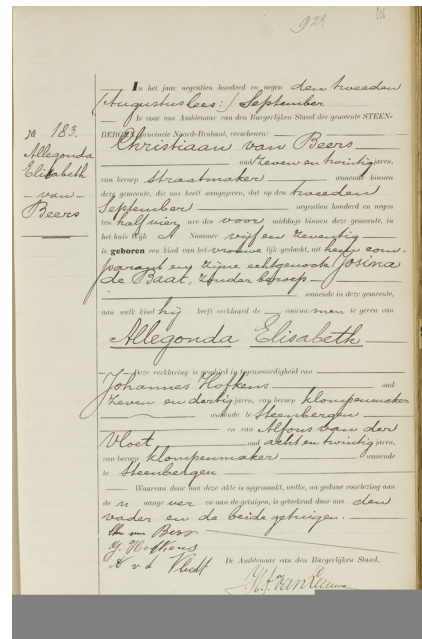 92.
In het jaar negentien honderd en negen den tweeden
(Augustus lees:) September
voor ons Ambtenaar van den Burgerlijken Stand der gemeente STEEN-
BERGEN, provincie Noord-Brabant, verschenen:
Christiaan van Beers
oud zeven en twintig jaren,
van beroep straatmaker wonende binnen
deze gemeente, die ons heeft aangegeven, dat op den tweeden
September negentien honderd en negen
ten half vier ure des voor middags binnen deze gemeente, in
het huis Wijk A Nommer vijf en zeventig
is geboren een kind van het vrouwelijk geslacht, uit hem com-
parant en zijne echtgenoote Josina
de Baat, zonder beroep
wonende in deze gemeente,
aan welk kind hij heeft verklaard de voorna men te geven van
Allegonda Elisabeth
Deze verklaring is geschied in tegenwoordigheid van
Johannes Hofkens oud
zeven en dertig jaren, van beroep klompenmaker
wonende te Steenbergen
en van Alfons van der
Vloet oud acht en twintig jaren,
van beroep klompenmaker wonende
te Steenbergen
Waarvan door ons deze akte is opgemaakt, welke, na gedane voorlezing aan
de n aange ver en aan de getuigen, is geteekend door ons den
vader en de beide getuigen.
van Beers
J. Hofkens
A v d Vloet
De Ambtenaar van den Burgerlijken Stand,
No 183.
Allegonda
Elisabeth
- van -
Beers